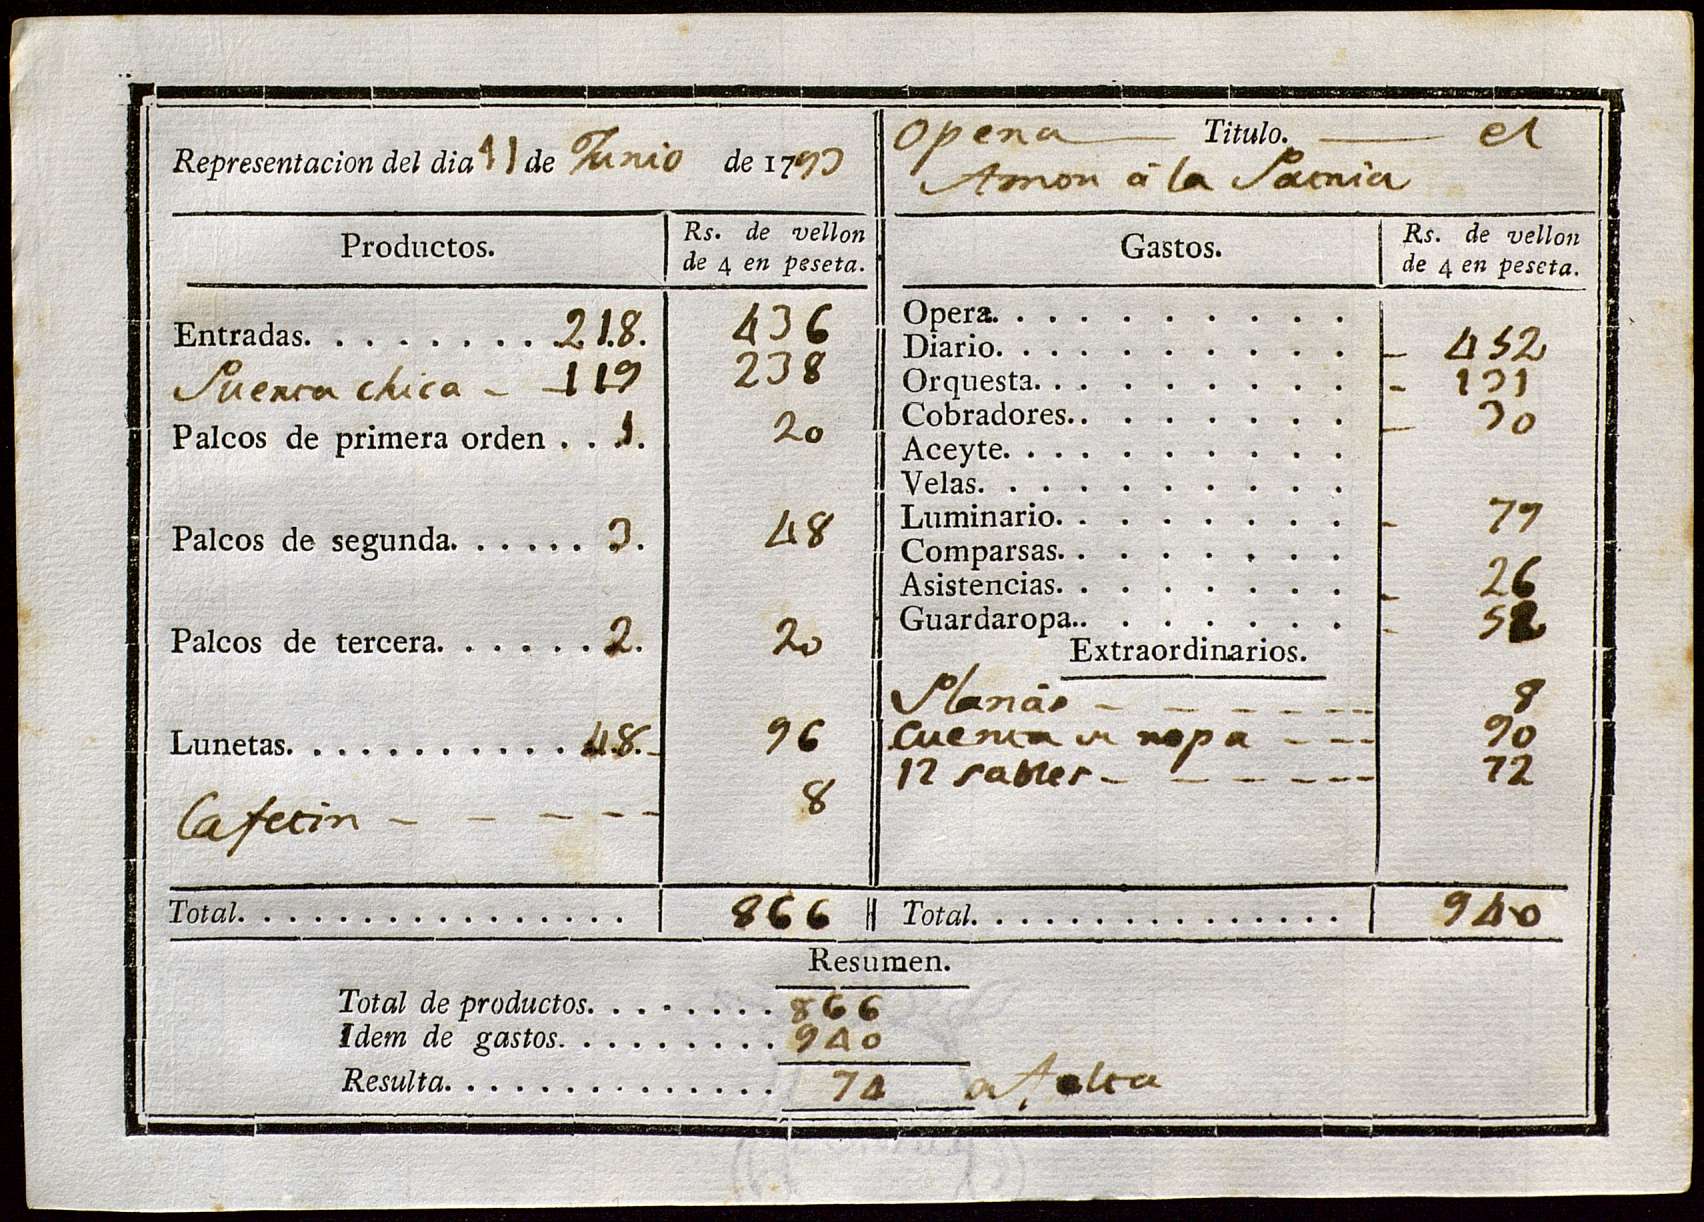 Representacion del dia 11 de Junio de 1793
Opera Titulo. el
Amor â la Patria
Productos. Rs. de vellon de 4 en peseta.
Gastos. Rs. de vellon de 4 en peseta.
Entradas. 218. 436
Puerta chica 119 238
Palcos de primera orden 1. 20
Palcos de segunda. 3. 48
Palcos de tercera. 2. 20
Lunetas. 48. 96
Cafetin 8
Opera.
Diario. 452
Orquesta. 131
Cobradores. 30
Aceyte.
Velas.
Luminario. 79
Comparsas.
Asistencias. 26
Guardaropa. 52
Extraordinarios.
Planâs 8
Cuenta de ropa 90
12 sables 72
Total. 866
Total. 940
Resumen.
Total de productos. 866
Idem de gastos. 940
Resulta. 74 a falta